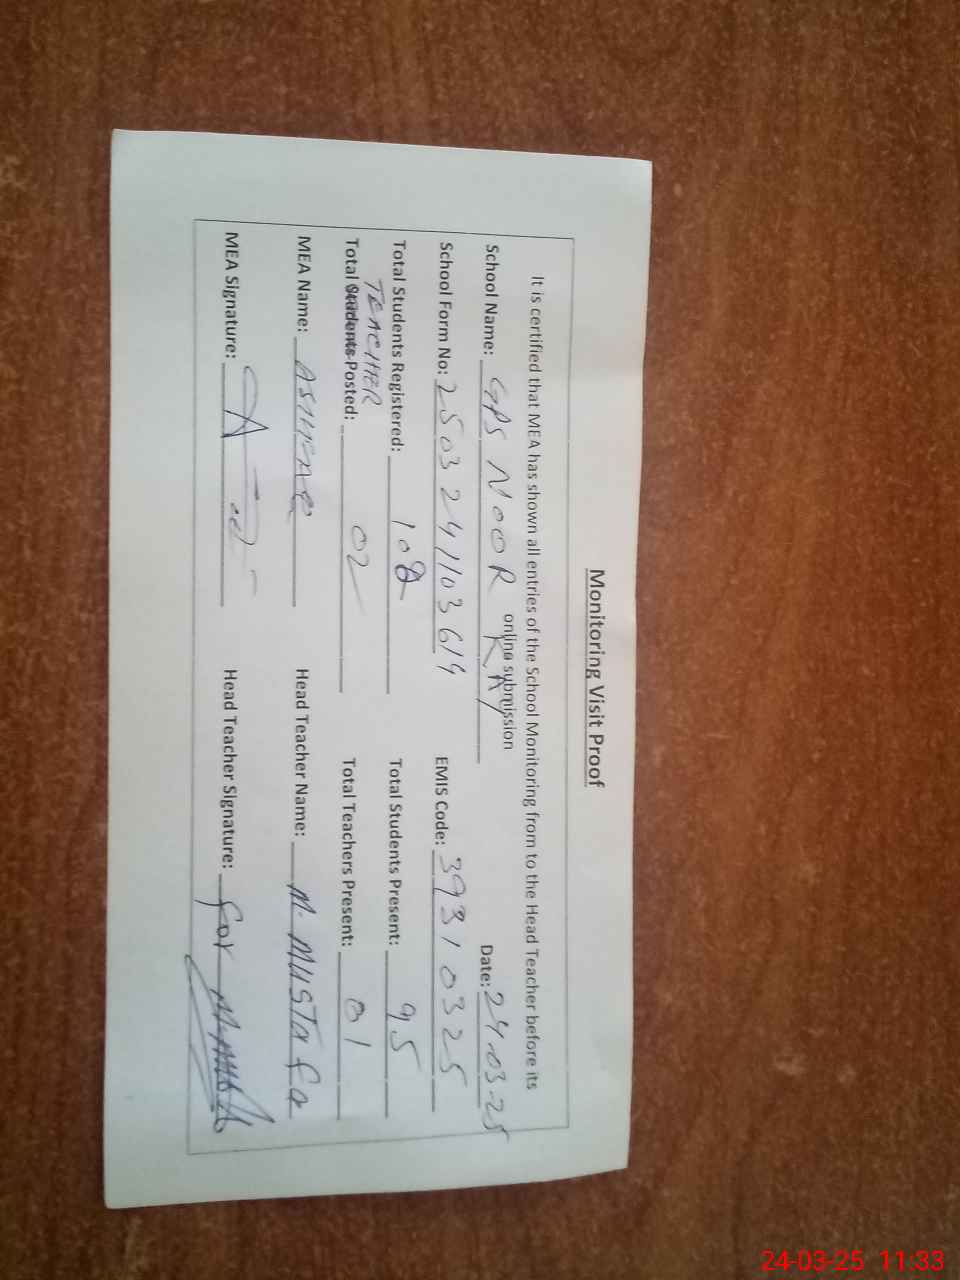 Monitoring Visit Proof
It is certified that MEA has shown all entries of the School Monitoring from to the Head Teacher before its
online submission
School Name: GPS NOOR Date: 24-03-25
School Form No: 25032411036 EMIS Code: 39310325
Total Students Registered: 108 Total Students Present: 95
TEACHER
Total Students Posted: 02 Total Teachers Present: 01
MEA Name: Head Teacher Name: M. MUSTAfa
MEA Signature: Head Teacher Signature: for
24-03-25 11:33